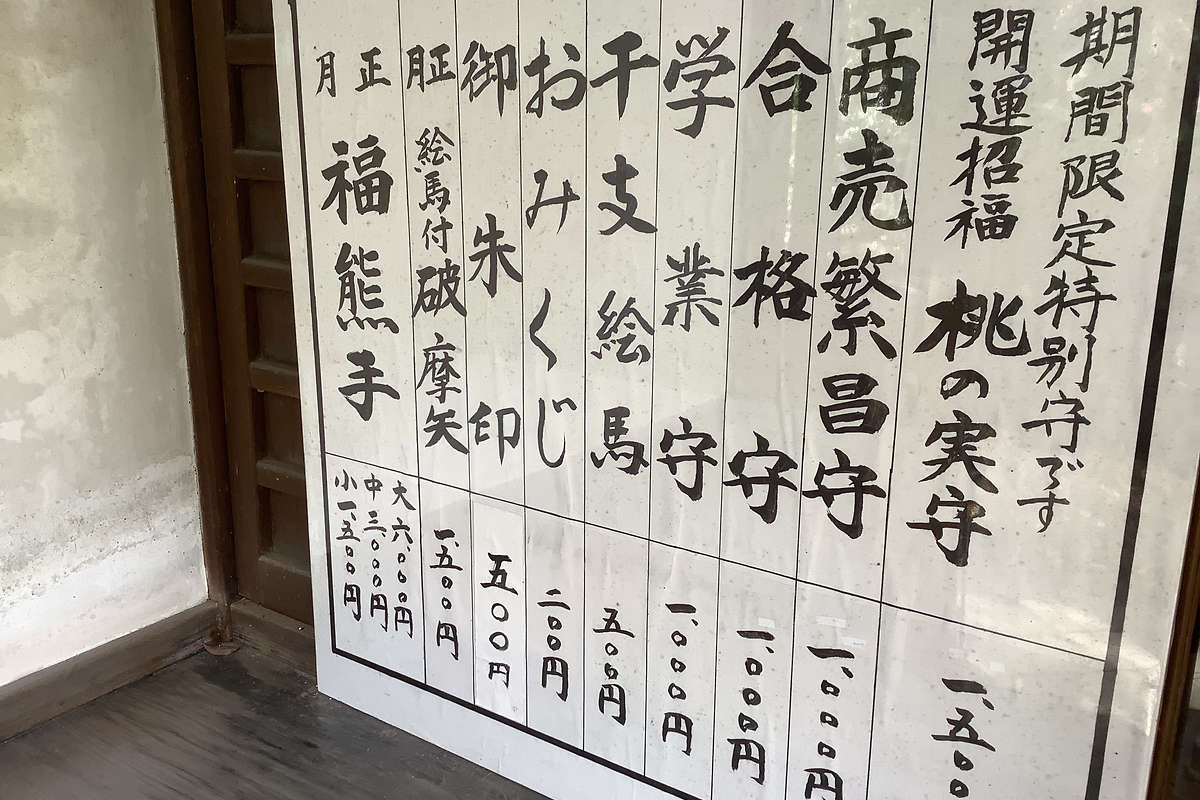 期間限定特別守です
開運招福 桃の実守 一、五〇〇
商売繁昌守 一、〇〇〇円
合格守 一、〇〇〇円
学業守 一、〇〇〇円
干支絵馬 五〇〇円
おみくじ 二〇〇円
御朱印 五〇〇円
正月 絵馬付破摩矢 一、五〇〇円
正月 福熊手 大 六、〇〇〇円
中 三、〇〇〇円
小 一、五〇〇円